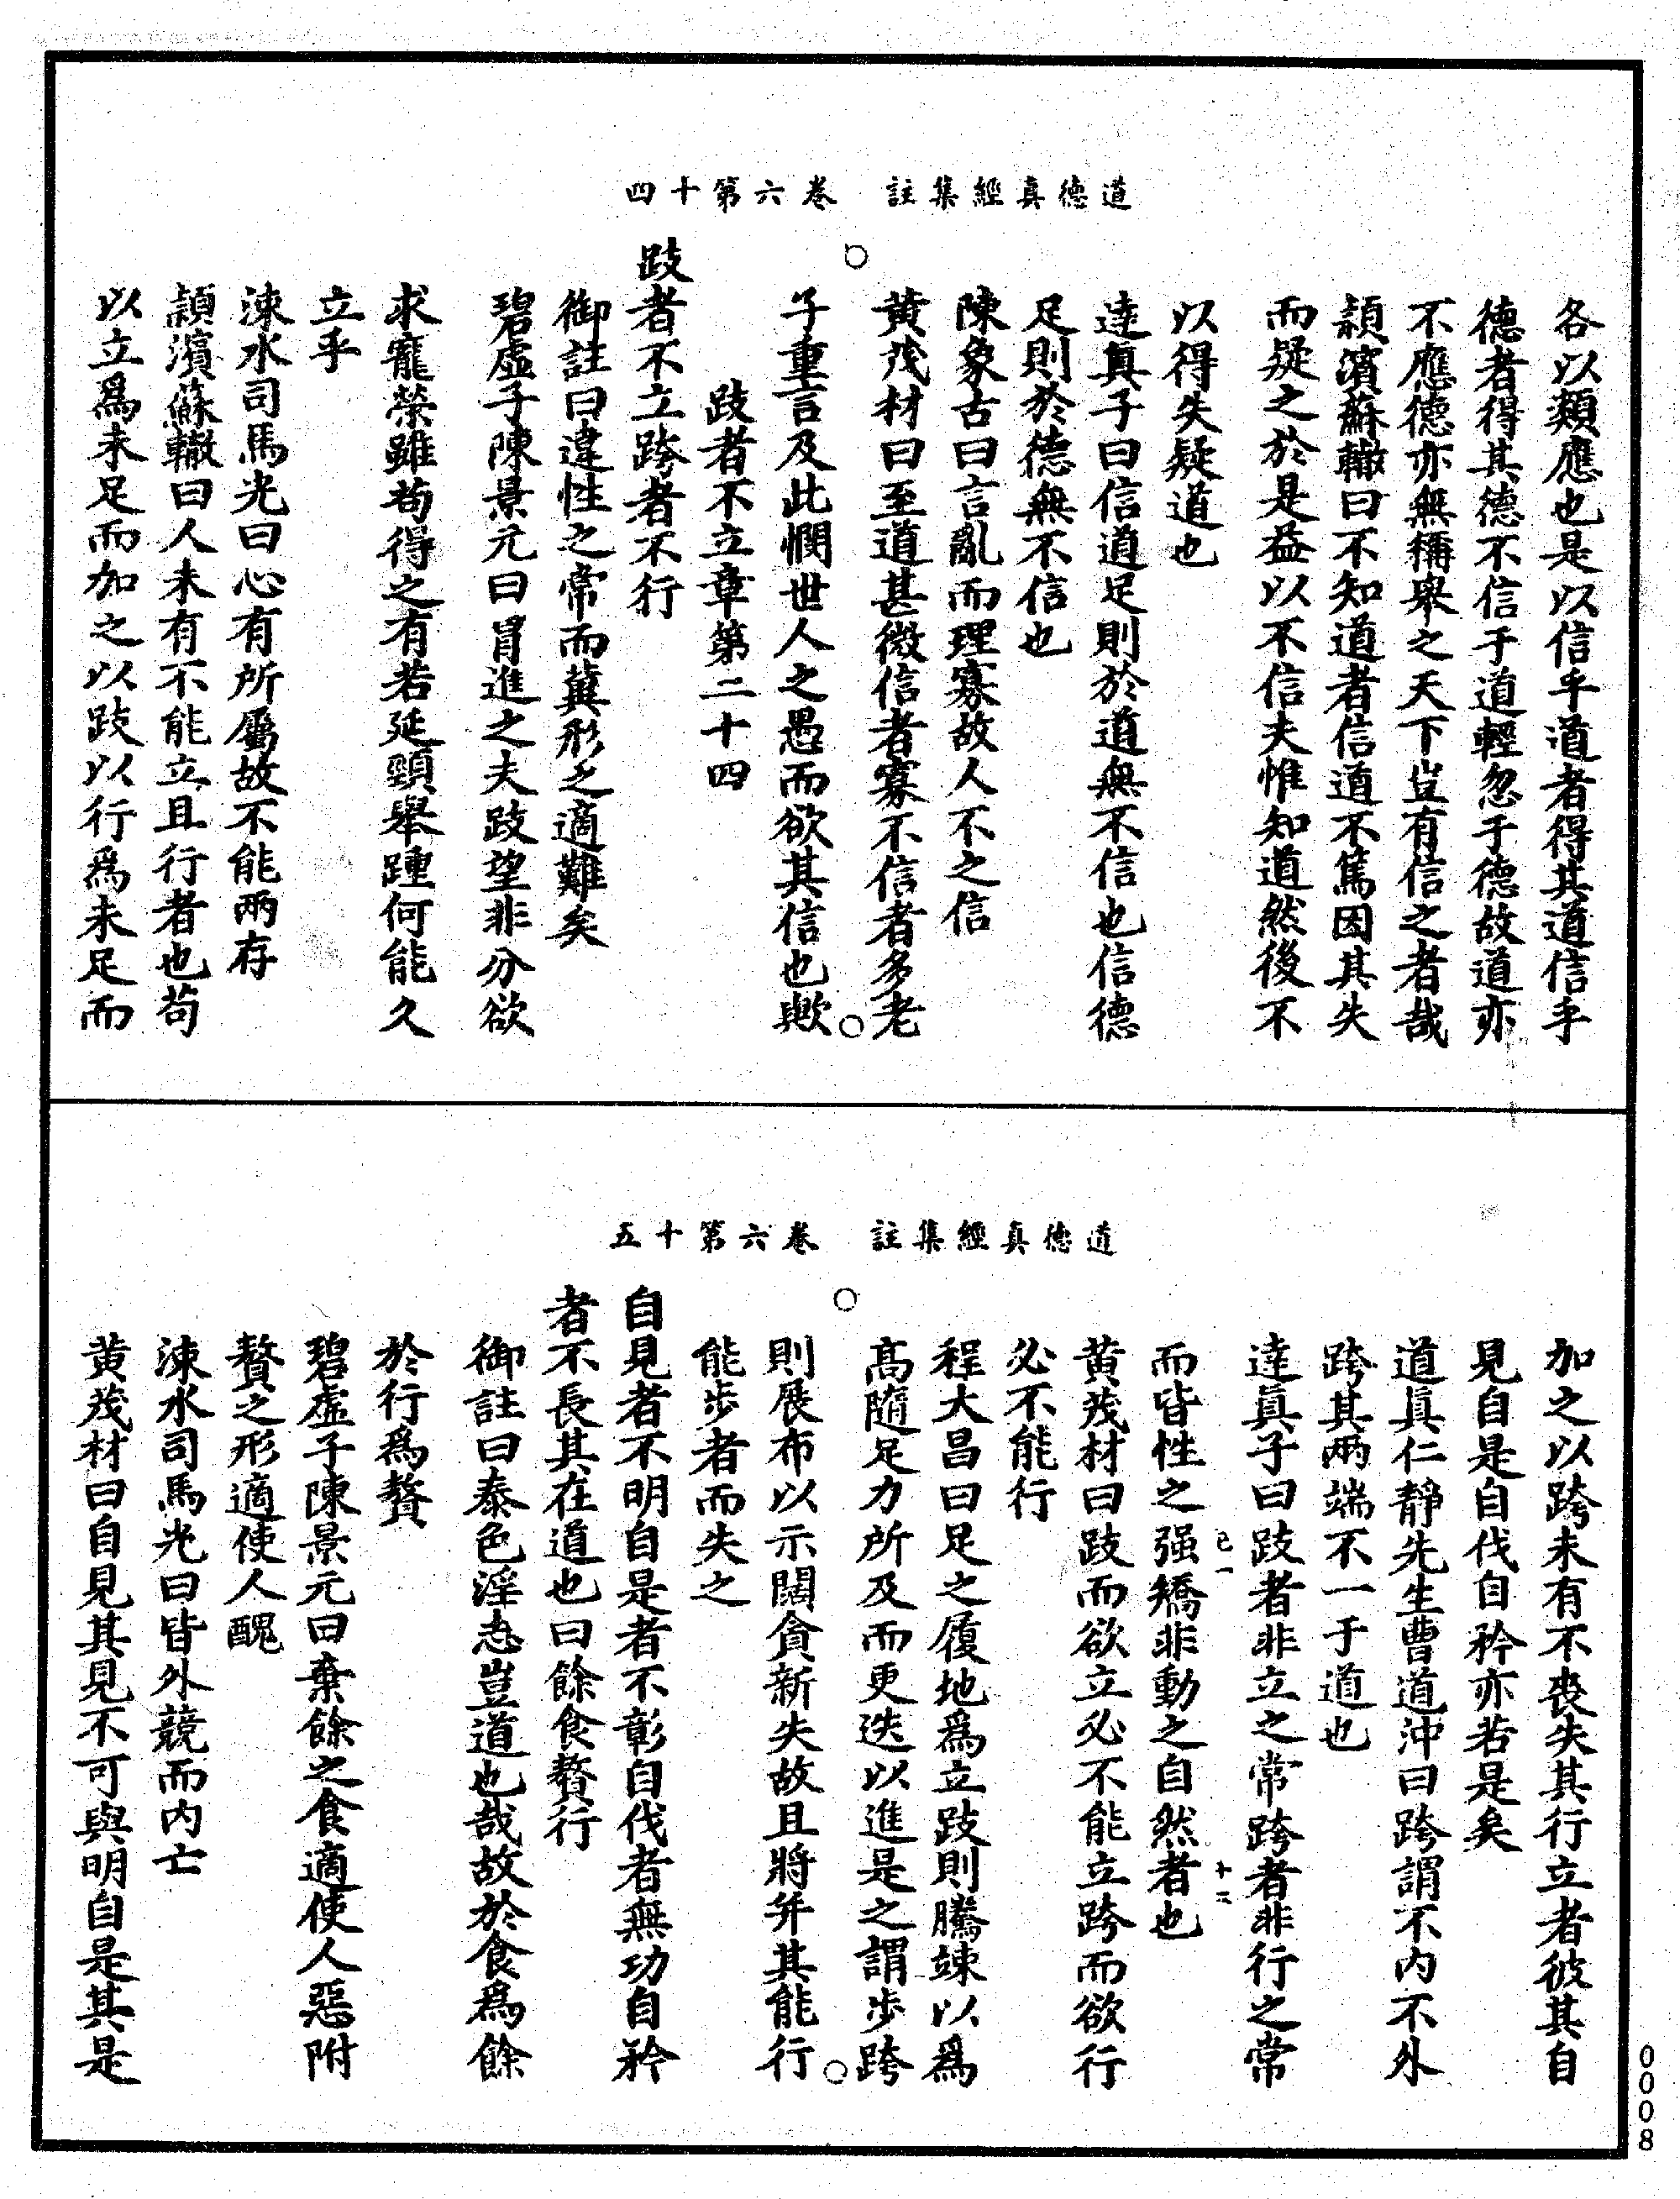 道德真經集註　卷六第十四
各以類應也是以信乎道者得其道信乎
德者得其德不信于道輕忽于德故道亦
不應德亦無稱舉之天下豈有信之者哉
頴濱蘇轍曰不知道者信道不篤因其失
而疑之於是益以不信夫惟知道然後不
以得失疑道也
達真子曰信道足則於道無不信也信德
足則於德無不信也
陳象古曰言亂而理寡故人不之信
黃茂材曰至道甚微信者寡不信者多老
子重言及此憫世人之愚而欲其信也歟
跂者不立章第二十四
跂者不立跨者不行
御註曰違性之常而冀形之適難矣
碧虛子陳景元曰冐進之夫跂望非分欲
求寵榮雖苟得之有若延頸舉踵何能久
立乎
涑水司馬光曰心有所屬故不能兩存
頴濱蘇轍曰人未有不能立且行者也苟
以立爲未足而加之以跂以行爲未足而
道德真經集註　卷六第十五
加之以跨未有不喪失其行立者彼其自
見自是自伐自矜亦若是矣
道真仁靜先生曹道沖曰跨謂不內不外
跨其兩端不一于道也
達真子曰跂者非立之常跨者非行之常
己一　十二
而皆性之强矯非動之自然者也
黃茂材曰跂而欲立必不能立跨而欲行
必不能行
程大昌曰足之履地爲立跂則騰竦以爲
高隨足力所及而更迭以進是之謂步跨
則展布以示闊貪新失故且將并其能行
能步者而失之
自見者不明自是者不彰自伐者無功自矜
者不長其在道也曰餘食贅行
御註曰泰色淫志豈道也哉故於食爲餘
於行爲贅
碧虛子陳景元曰棄餘之食適使人惡附
贅之形適使人醜
涑水司馬光曰皆外競而內亡
黃茂材曰自見其見不可與明自是其是
0008